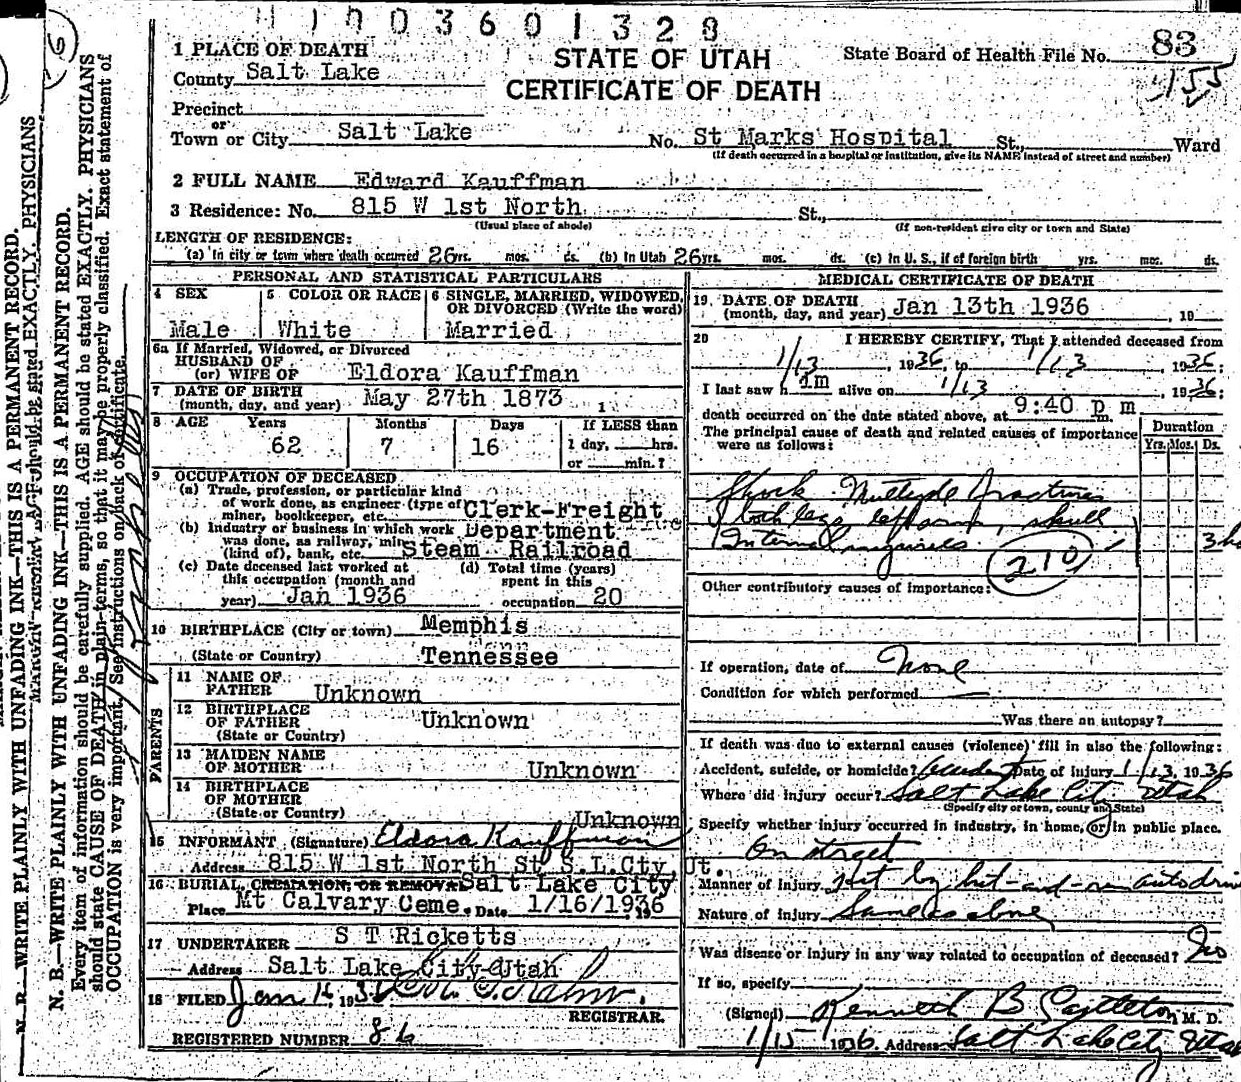 H 1 0 0 3 6 0 1 3 2 8
1 PLACE OF DEATH
County Salt Lake
STATE OF UTAH
CERTIFICATE OF DEATH
State Board of Health File No. 83
155
Precinct
or
Town or City Salt Lake No. St Marks Hospital St., Ward
(If death occurred in a hospital or institution, give its NAME instead of street and number)
2 FULL NAME Edward Kauffman
3 Residence: No. 815 W 1st North St.,
(Usual place of abode) (If non-resident give city or town and State)
LENGTH OF RESIDENCE:
(a) In city or town where death occurred 26 yrs. mos. ds. (b) In Utah 26 yrs. mos. ds. (c) In U. S., if of foreign birth yrs. mos. ds.
PERSONAL AND STATISTICAL PARTICULARS
4 SEX
Male
5 COLOR OR RACE
White
6 SINGLE, MARRIED, WIDOWED,
OR DIVORCED (Write the word)
Married
6a If Married, Widowed, or Divorced
HUSBAND OF
(or) WIFE OF Eldora Kauffman
7 DATE OF BIRTH
(month, day, and year) May 27th 1873 1
8 AGE Years Months Days If LESS than
62 7 16 1 day, hrs.
or min.?
9 OCCUPATION OF DECEASED
(a) Trade, profession, or particular kind
of work done, as engineer (type of
miner, bookkeeper, etc. Clerk-Freight
(b) Industry or business in which work Department
was done, as railway, mine
(kind of), bank, etc. Steam Railroad
(c) Date deceased last worked at
this occupation (month and
year) Jan 1936
(d) Total time (years)
spent in this
occupation 20
10 BIRTHPLACE (City or town) Memphis
(State or Country) Tennessee
PARENTS
11 NAME OF
FATHER Unknown
12 BIRTHPLACE
OF FATHER Unknown
(State or Country)
13 MAIDEN NAME
OF MOTHER Unknown
14 BIRTHPLACE
OF MOTHER
(State or Country) Unknown
15 INFORMANT (Signature) Eldora Kauffman
Address 815 W 1st North St S.L.Cty, Ut.
16 BURIAL, CREMATION, OR REMOVAL Salt Lake City
Place Mt Calvary Ceme. Date 1/16/1936
17 UNDERTAKER S T Ricketts
Address Salt Lake City Utah
18 FILED Jan 16, 193
REGISTRAR.
REGISTERED NUMBER 86
MEDICAL CERTIFICATE OF DEATH
19 DATE OF DEATH
(month, day, and year) Jan 13th 1936, 19
20 I HEREBY CERTIFY, That I attended deceased from
1/13, 1936, to 1/13, 1936;
I last saw h im alive on 1/13, 1936;
death occurred on the date stated above, at 9:40 p m
The principal cause of death and related causes of importance
were as follows:
Duration
Yrs. Mos. Ds.
Shock Multiple fractures
both legs, left arm, skull
Internal injuries
210
3 ho
Other contributory causes of importance:
If operation, date of None
Condition for which performed
Was there an autopsy?
If death was due to external causes (violence) fill in also the following:
Accident, suicide, or homicide? Accident Date of injury 1/13, 1936
Where did injury occur? Salt Lake City Utah
(Specify city or town, county and State)
Specify whether injury occurred in industry, in home, or in public place.
On street
Manner of Injury Hit by hit-and-run auto driv
Nature of Injury Same as above
Was disease or injury in any way related to occupation of deceased? No
If so, specify
(Signed) Kenneth B Castleton M. D.
1/15 1936. Address Salt Lake City Utah
N. B.—WRITE PLAINLY WITH UNFADING INK—THIS IS A PERMANENT RECORD.
N. B.—WRITE PLAINLY WITH UNFADING INK—THIS IS A PERMANENT RECORD.
Every item of information should be carefully supplied. AGE should be stated EXACTLY. PHYSICIANS
should state CAUSE OF DEATH in plain terms, so that it may be properly classified. Exact statement of
OCCUPATION is very important. See instructions on back of certificate.